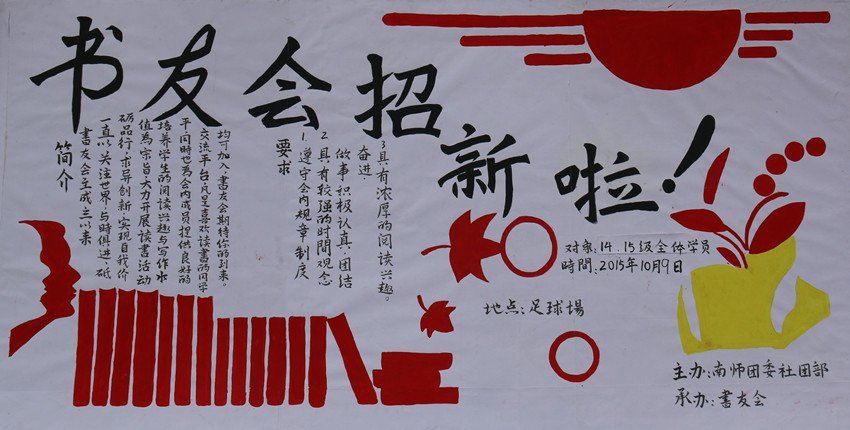 书友会招新啦！
简介
書友会至成立以来
一直以关注世界、与時俱进、砥
砺品行、求异创新、实现自我价
值為宗旨.大力开展读書活动
培养学生的阅读兴趣与写作水
平同時也為会内成员提供良好的
交流平台.凡是喜欢读書的同学
均可加入書友会期待你的到来。
要求
1.遵守会内规章制度
2.具有较强的時間观念
做事积极认真.团结
奋进.
3具有浓厚的阅读兴趣。
对象:14.15级全体学员
時間:2015年10月9日
地点:足球場
主办:南师团委社团部
承办:書友会